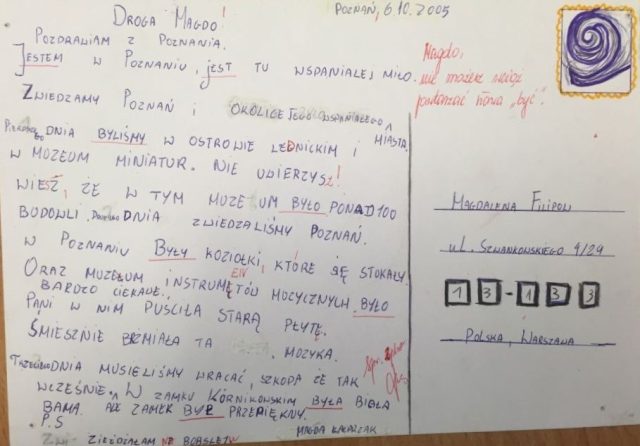 Poznań, 6.10.2005
Droga Magdo!
Pozdrawiam z Poznania.
Jestem w Poznaniu, jest tu wspaniałej miło.
Zwiedzamy Poznań i okolice jego wspaniałego
miasta.
dnia byliśmy w Ostrowie Lednickim i
w muzeum miniatur. Nie uwierzysz!
wiesz, że w tym muzeum było ponad 100
budowli. dnia zwiedzaliśmy Poznań.
w Poznaniu były koziołki, które się stokały.
bardzo ciekawe.
Oraz muzeum instrumętów mozycznych. było
Pani w nim puściła starą płytę.
Śmiesznie brzmiała ta mozyka.
Trzeciego dnia musieliśmy wracać, szkoda że tak
wcześnie. W zamku Kórnikowskim była biała
dama. ale zamek był przepiękny.
P.S
Zjeżdżałam na
Magda
Magdo,
nie możesz wciąż
powtarzać słowa "być".
Magdalena Filipow
ul. Szwankowskiego 4/29
13-133
Polska, Warszawa